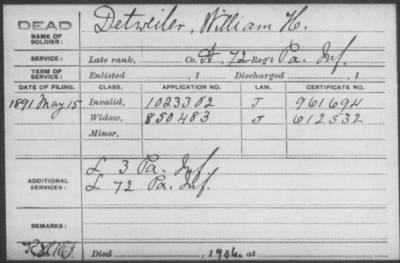 DEAD Detweiler, William H.
NAME OF SOLDIER:
SERVICE: Late rank, Co. A, 72 Reg't Pa. Inf.
TERM OF SERVICE: Enlisted , 1 Discharged , 1
DATE OF FILING. CLASS. APPLICATION NO. LAW. CERTIFICATE NO.
1891 May 15 Invalid, 1023302 J 961694
Widow, 850483 J 612532
Minor,
ADDITIONAL SERVICES: L 3 Pa. Inf.
L 72 Pa. Inf.
REMARKS:
Died , 1906. at